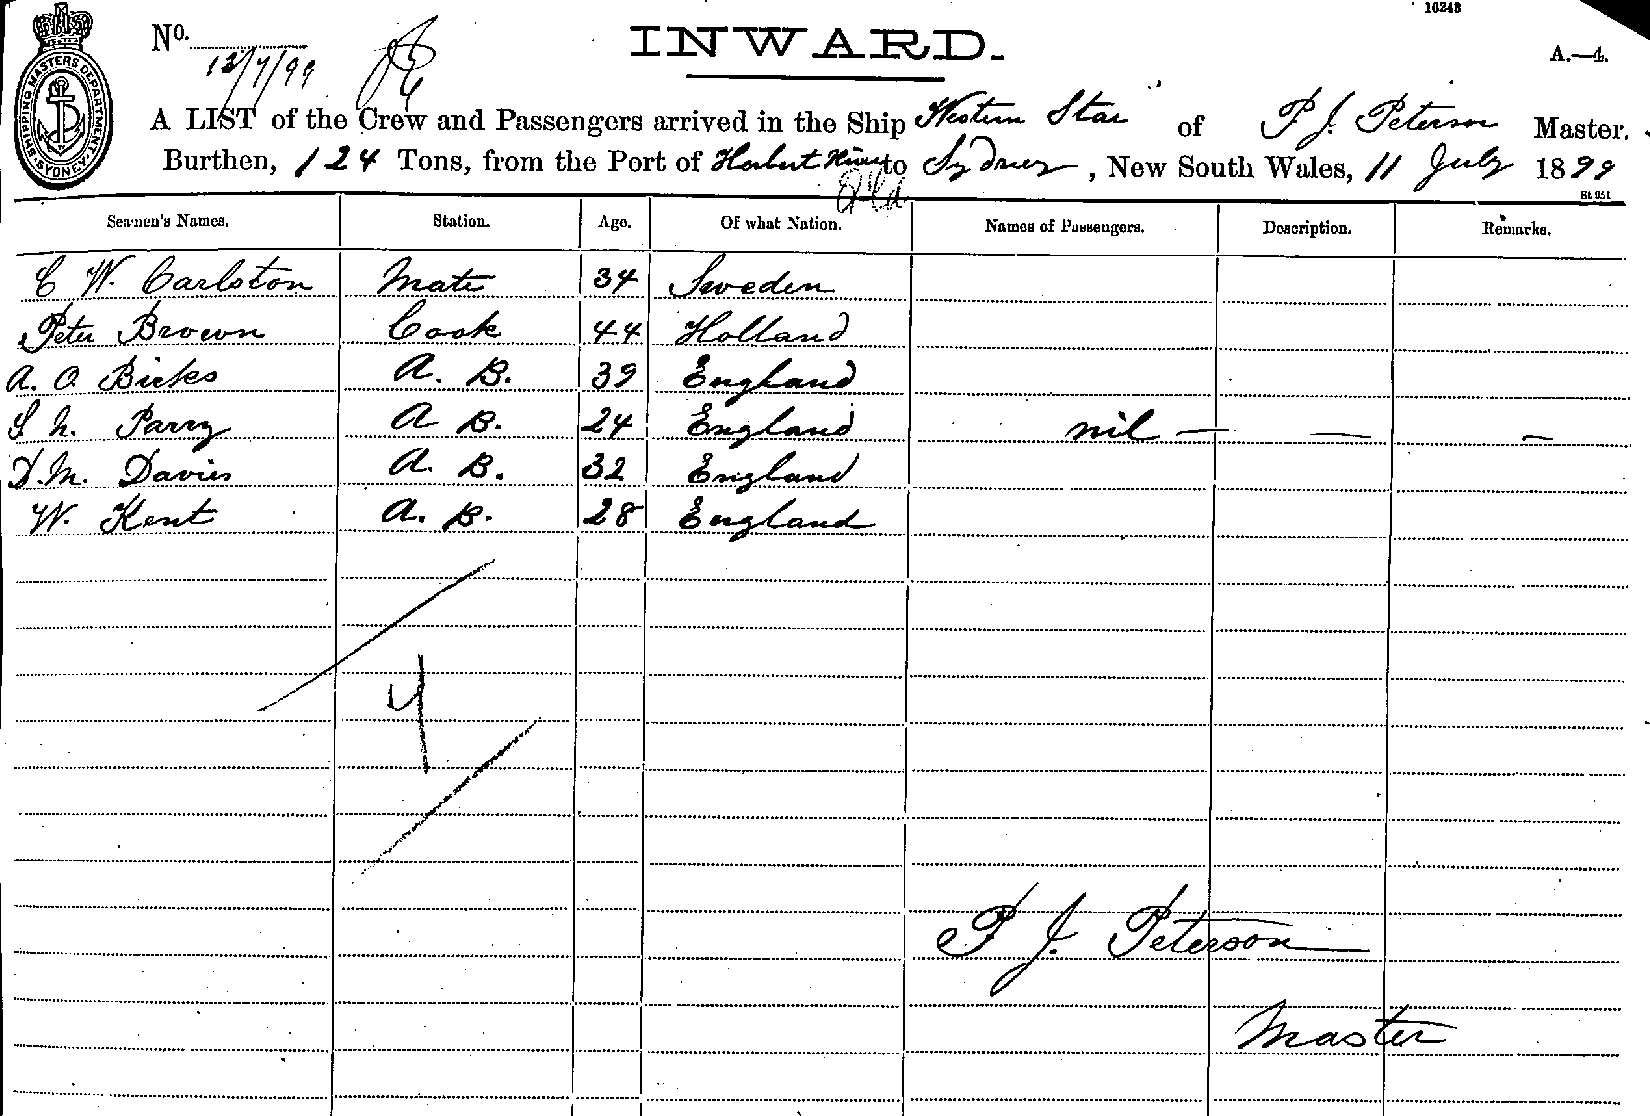 10248
No. 12/7/99
INWARD.
A.—4.
SHIPPING MASTERS DEPARTMENT SYDNEY
A LIST of the Crew and Passengers arrived in the Ship Western Star of P J. Peterson Master.
Burthen, 124 Tons, from the Port of Herbert River Qld to Sydney, New South Wales, 11 July 1899
Seamen's Names. Station. Age. Of what Nation. Names of Passengers. Description. Remarks.
C W. Carlston Mate 34 Sweden
Peter Brown Cook 44 Holland
A. O. Bicks A. B. 39 England
Parry A B. 24 England nil — — —
D. M. Davies A. B. 32 England
W. Kent A. B. 28 England
4
P J. Peterson
Master